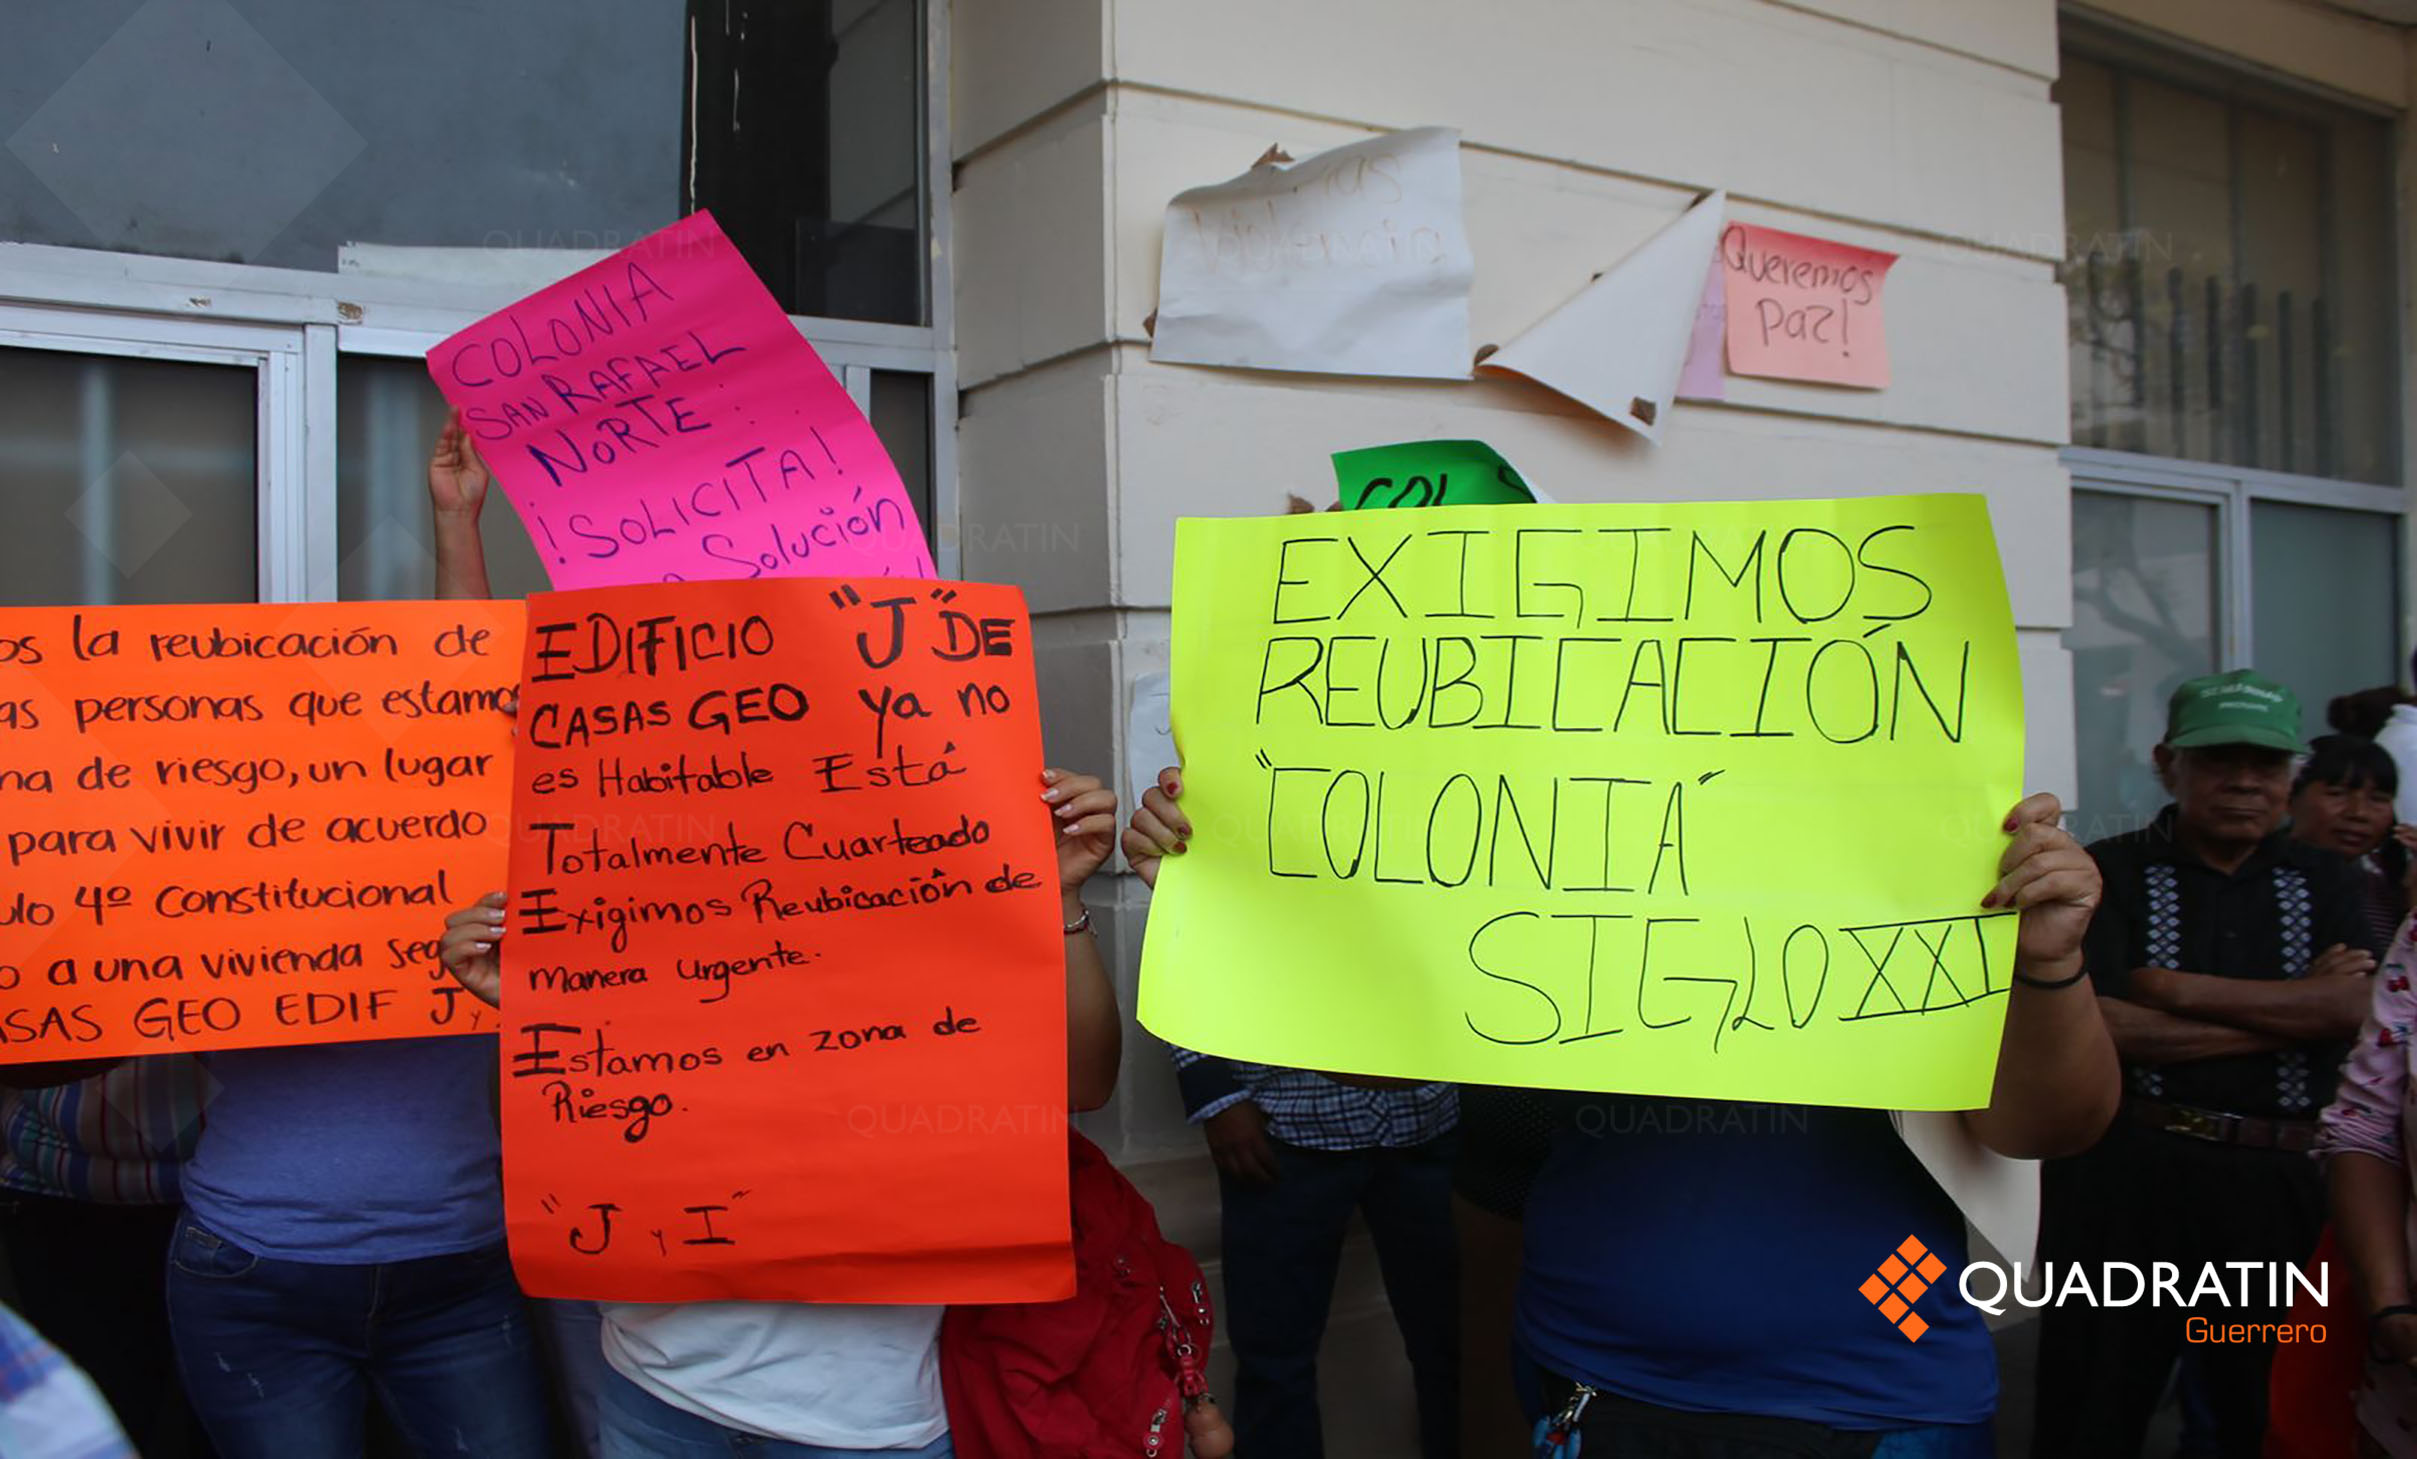 COLONIA
SAN RAFAEL
NORTE.
¡SOLICITA!
Solución
os la reubicación de
as personas que estamos
na de riesgo, un lugar
para vivir de acuerdo
ulo 4º Constitucional
o a una vivienda seg
ASAS GEO EDIF J y
EDIFICIO "J" DE
CASAS GEO ya no
es Habitable Está
Totalmente Cuarteado
Exigimos Reubicación de
manera urgente.
Estamos en zona de
Riesgo.
"J y I"
Queremos
Paz!
COL
EXIGIMOS
REUBICACIÓN
"COLONIA"
SIGLO XXI
QUADRATIN
Guerrero